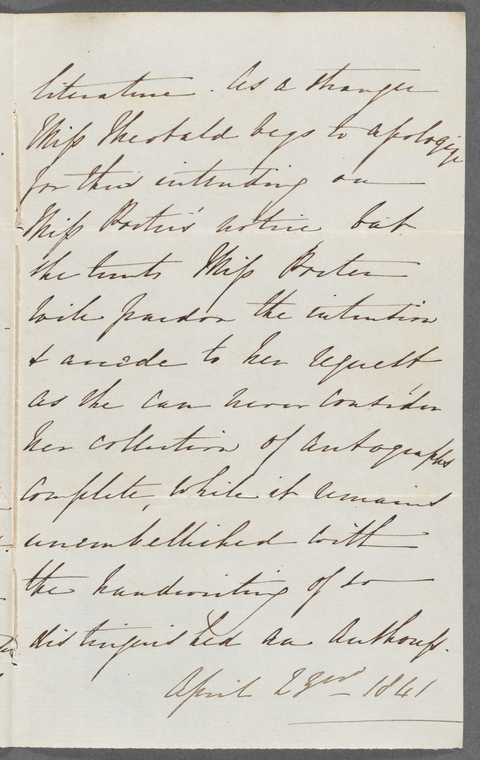 literature. As a stranger
Miss Theobald begs to apologize
for thus intruding on
Miss Porter's notice but
she trusts Miss Porter
will pardon the intrusion
& accede to her request
as she can never consider
her collection of autographs
complete, while it remains
unembellished with
the handwriting of so
distinguished an Authoress.
April 23rd 1841